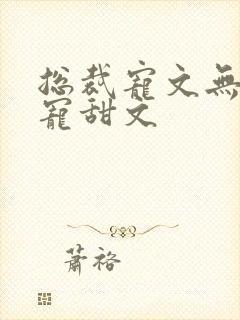 总裁寵文無
寵甜文
蕭裕